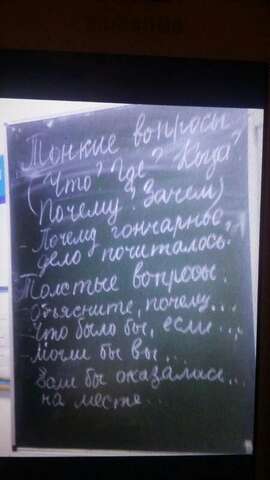 Тонкие вопросы
(Что? Где? Когда?
Почему? Зачем)
- Почему гончарное
дело почиталось.
Толстые вопросы.
- Объясните, почему...
- Что было бы, если...
- Могли бы вы...
Если бы оказались...
на месте...